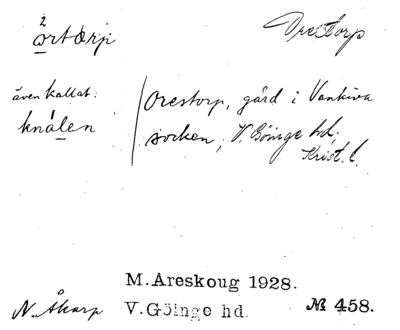 2
ortorp Orestorp
även kallat: Orestorp, gård i Vankiva
knálen socken, V. Göinge hd.
Krist. l.
M. Areskoug 1928.
N. Åkarp V. Göinge hd. № 458.